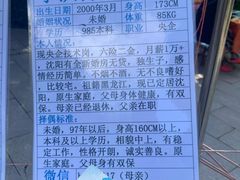 出生日期 2000年3月 身高 173CM
婚姻状况 未婚 体重 85KG
学历 985本科 职业 央企
本人情况:
现央企技术岗,六险二金,月薪1万+
沈阳有全新婚房无贷,独生子,感
情经历简单,不烟不酒,无不良嗜好
,比较宅。祖籍黑龙江,现已定居沈
阳,原生家庭,父母身体健康,有双
保。母亲已经退休,父亲在职
择偶标准:
未婚,97年以后,身高160CM以上,
本科及以上学历,相貌中上,有稳定
工作,性格开朗,诚实善良。原
生家庭。父母身体健康有双保
微信 (母亲)